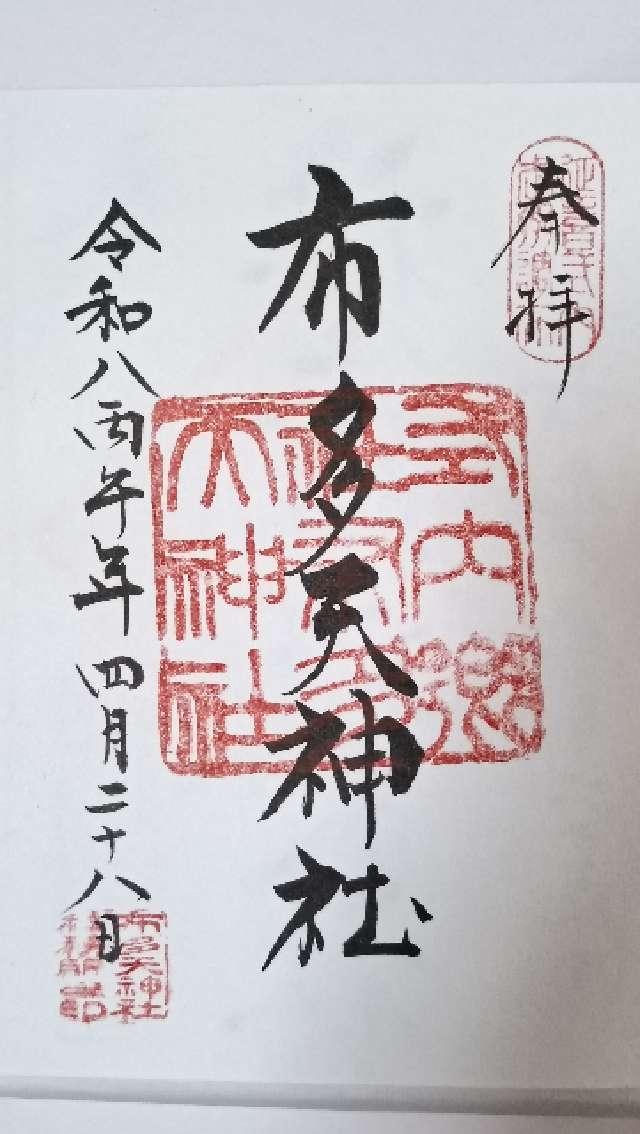 奉拝
布多天神社
令和八丙午年四月二十八日
式内郷
社布多
天神社
布多天神社